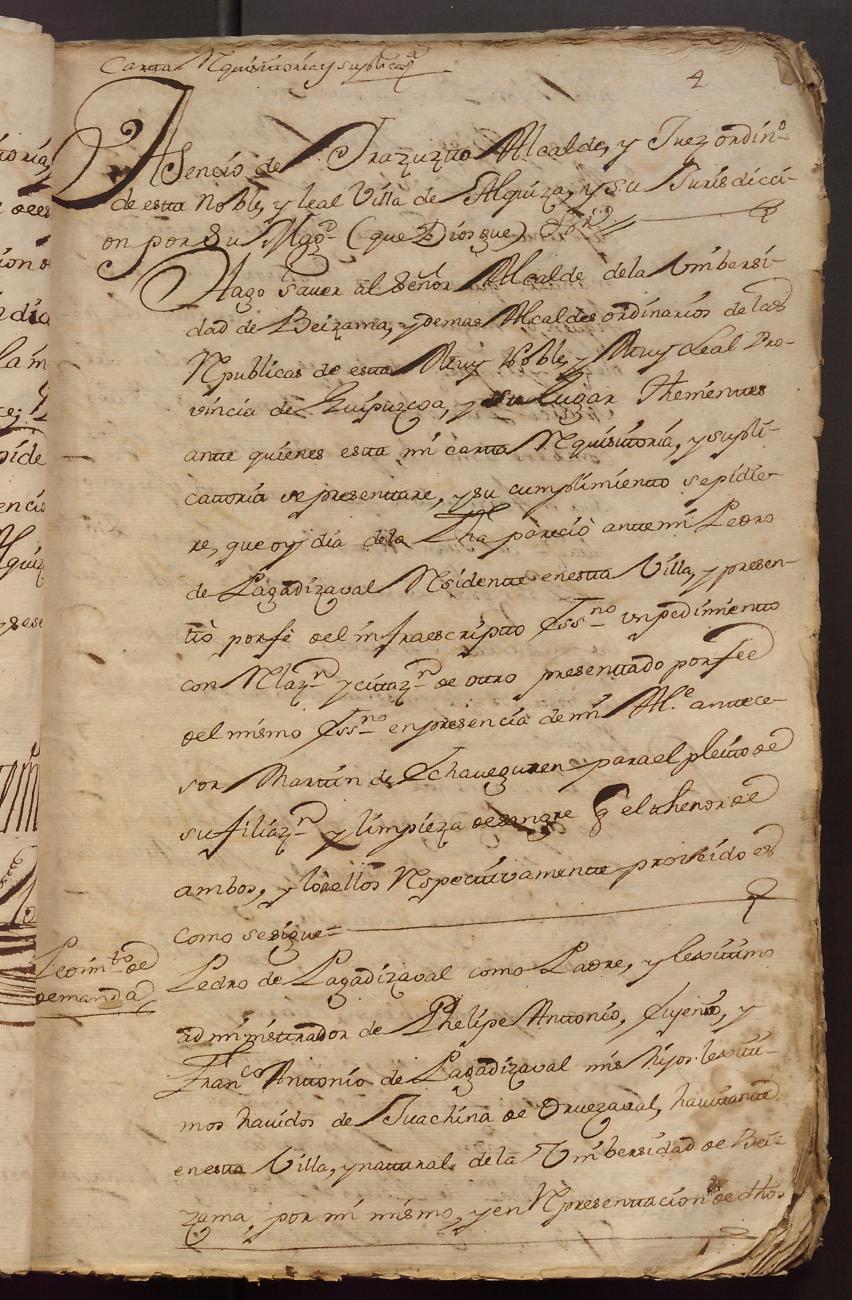 Carta Requisitoria y suplica.ª
4
Asencio de Irazuzta Alcalde, y Juez ordin.º
de esta Noble, y leal Villa de Alquiza, y su Jurisdicci-
on por Su Mgd. (que Dios gue)
Hago saver al Señor Alcalde de la Vniversi-
dad de Beizama, y demas Alcaldes ordinarios de las
Republicas de esta Muy Noble, y Muy Leal Pro-
vincia de Guipuzcoa, y su Lugar Thenientes
ante quienes esta mi carta Requisitoria, y supli-
catoria se presentare, y su cumplimiento se pidie-
re, que oy dia de la Fha parecio ante mi Pedro
de Lagadizaval Residente en esta Villa, y presen-
tò por fè del infraescripto Ess.no un pedimiento
con Relaz.n y citaz.n de otro presentado por fee
del mismo Ess.no en presencia de mi Al.e antece-
sor Martin de Echaveguren para el pleito de
su filiaz.n y limpieza de sangre q el thenor de
ambos, y lo a ellos Respectivamente proveido es
como se sigue=
Pedim.to de
demanda
Pedro de Lagadizaval como Padre, y lexitimo
administrador de Phelipe Antonio, Eugenio, y
Fran.co Antonio de Lagadizaval mis hijos lexiti-
mos havidos de Juachina de Oruezaval, havitante
en esta Villa, y natural de la Vniversidad de Bei-
zama, por mi mismo, y en Representacion de dhos